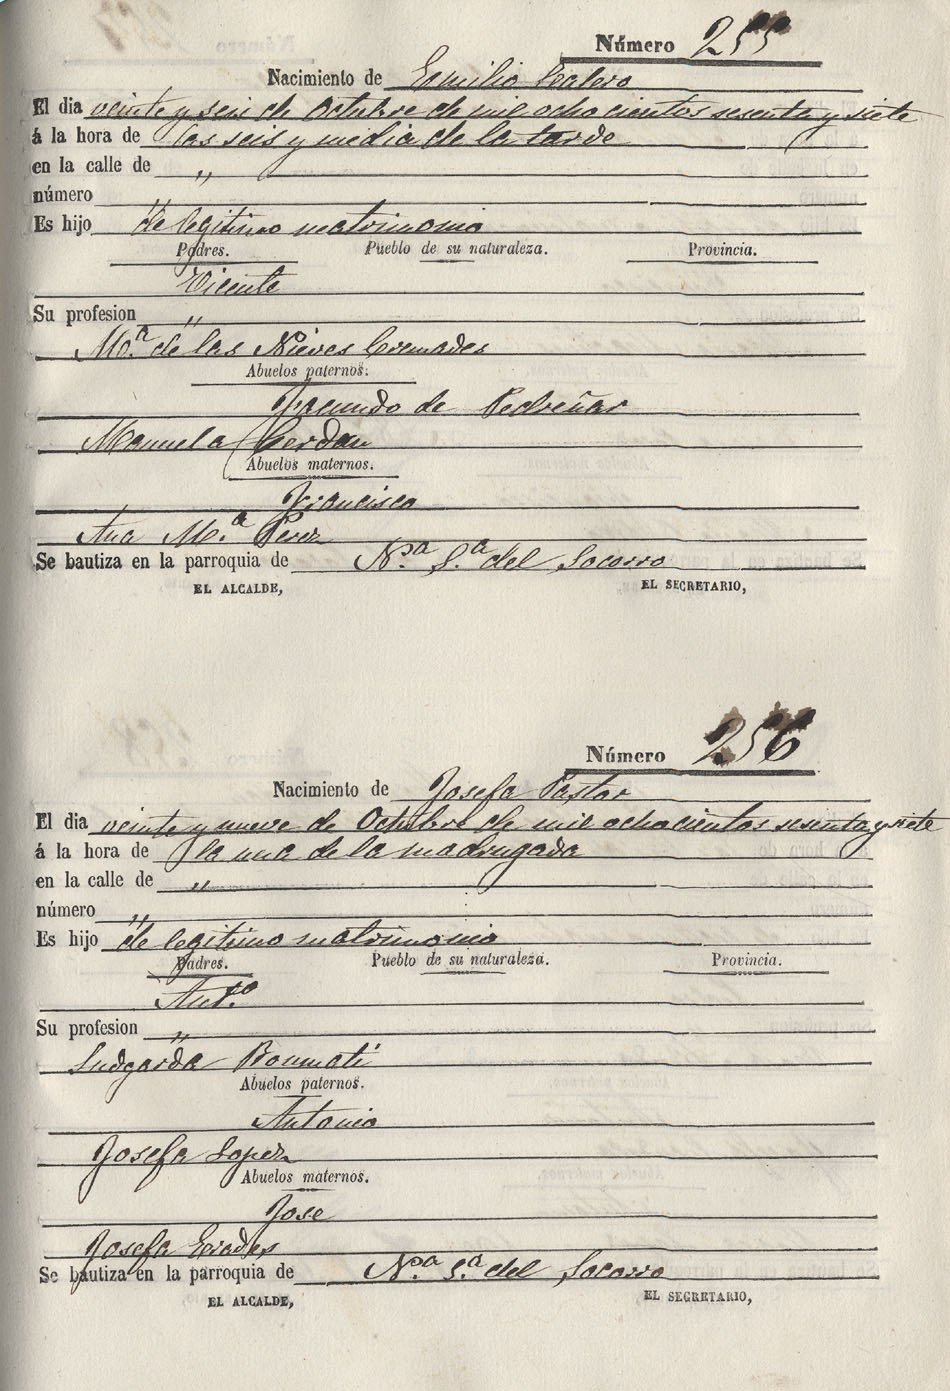 Número 255
Nacimiento de Emilio
El dia veinte y seis de Octubre de mil ocho cientos sesenta y siete
á la hora de las seis y media de la tarde
en la calle de "
número "
Es hijo de legitimo matrimonio
Padres. Pueblo de su naturaleza. Provincia.
Vicente
Su profesion "
M.ª de las Nieves Cremades
Abuelos paternos.
Facundo de Pedreñar
Manuela Cerdan
Abuelos maternos.
Francisco
Ana M.ª Perez
Se bautiza en la parroquia de N.ª S.ª del Socorro
EL ALCALDE, EL SECRETARIO,
Número 256
Nacimiento de Josefa Pastor
El dia veinte y nueve de Octubre de mil ocho cientos sesenta y siete
á la hora de la una de la madrugada
en la calle de "
número "
Es hijo de legitimo matrimonio
Padres. Pueblo de su naturaleza. Provincia.
Ant.º
Su profesion "
Ludgarda Boumati
Abuelos paternos.
Antonio
Josefa Lopez
Abuelos maternos.
Jose
Josefa
Se bautiza en la parroquia de N.ª S.ª del Socorro
EL ALCALDE, EL SECRETARIO,